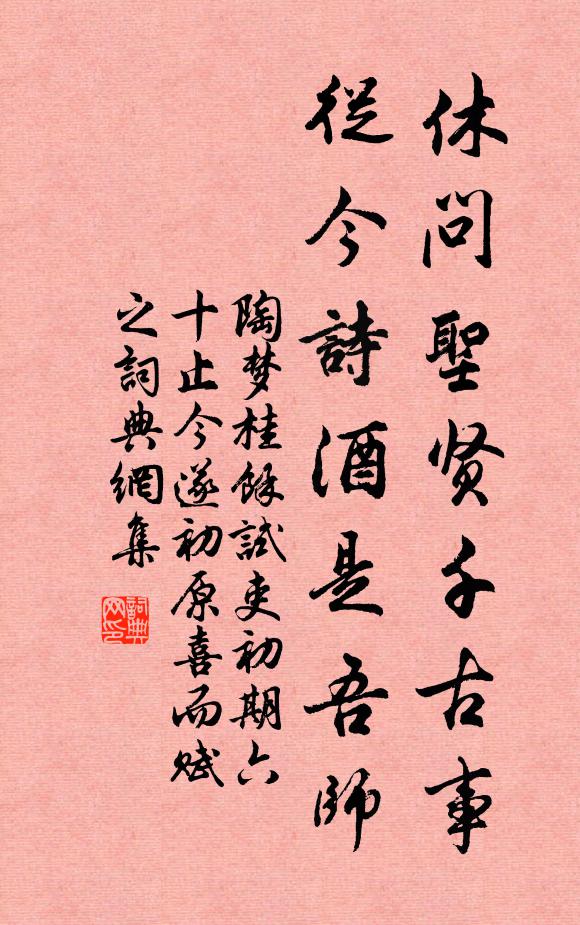 休問聖贤千古事
從今詩酒是吾師
陶梦桂餘試吏初期六
十止今遂初原喜而赋
之詞典網集
詞典
网印